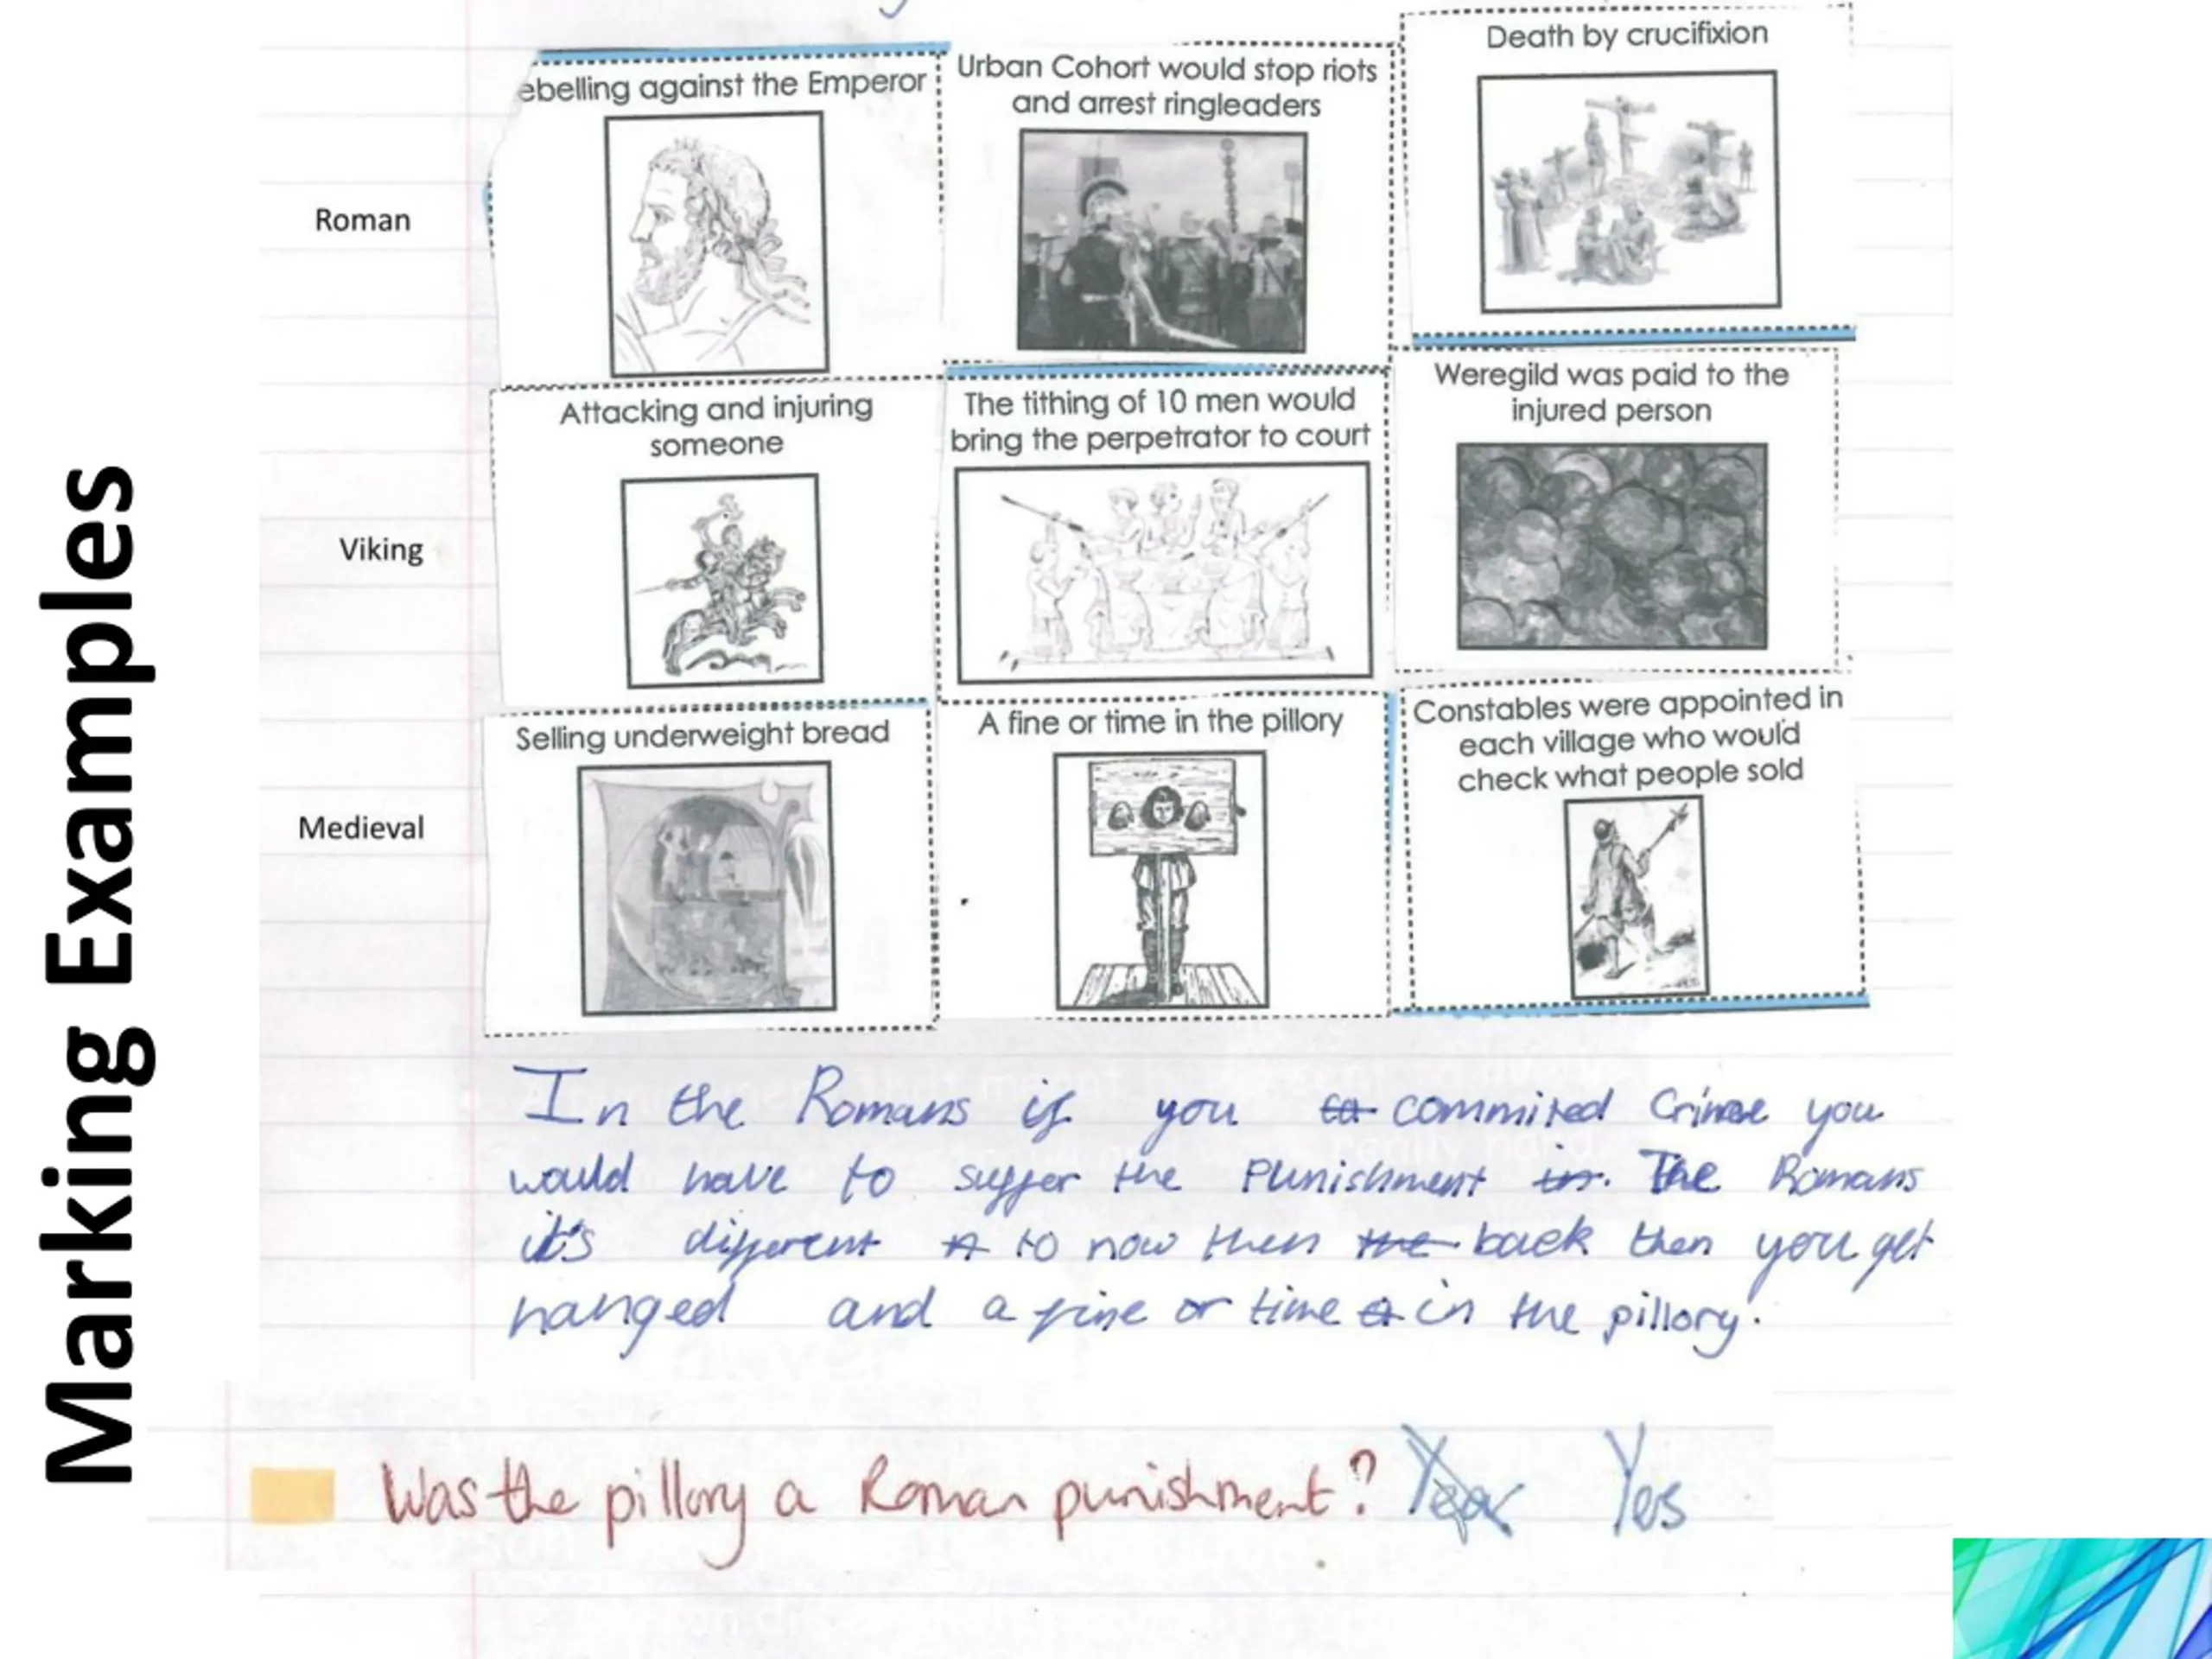 Marking Examples
Roman
ebelling against the Emperor
Urban Cohort would stop riots
and arrest ringleaders
Death by crucifixion
Viking
Attacking and injuring
someone
The tithing of 10 men would
bring the perpetrator to court
Weregild was paid to the
injured person
Medieval
Selling underweight bread
A fine or time in the pillory
Constables were appointed in
each village who would
check what people sold
In the Romans if you co commited Crime you
would have to suffer the Punishment in. The Romans
it's different to now then the back then you get
hanged and a fine or time in the pillory.
Was the pillory a Roman punishment? Year Yes